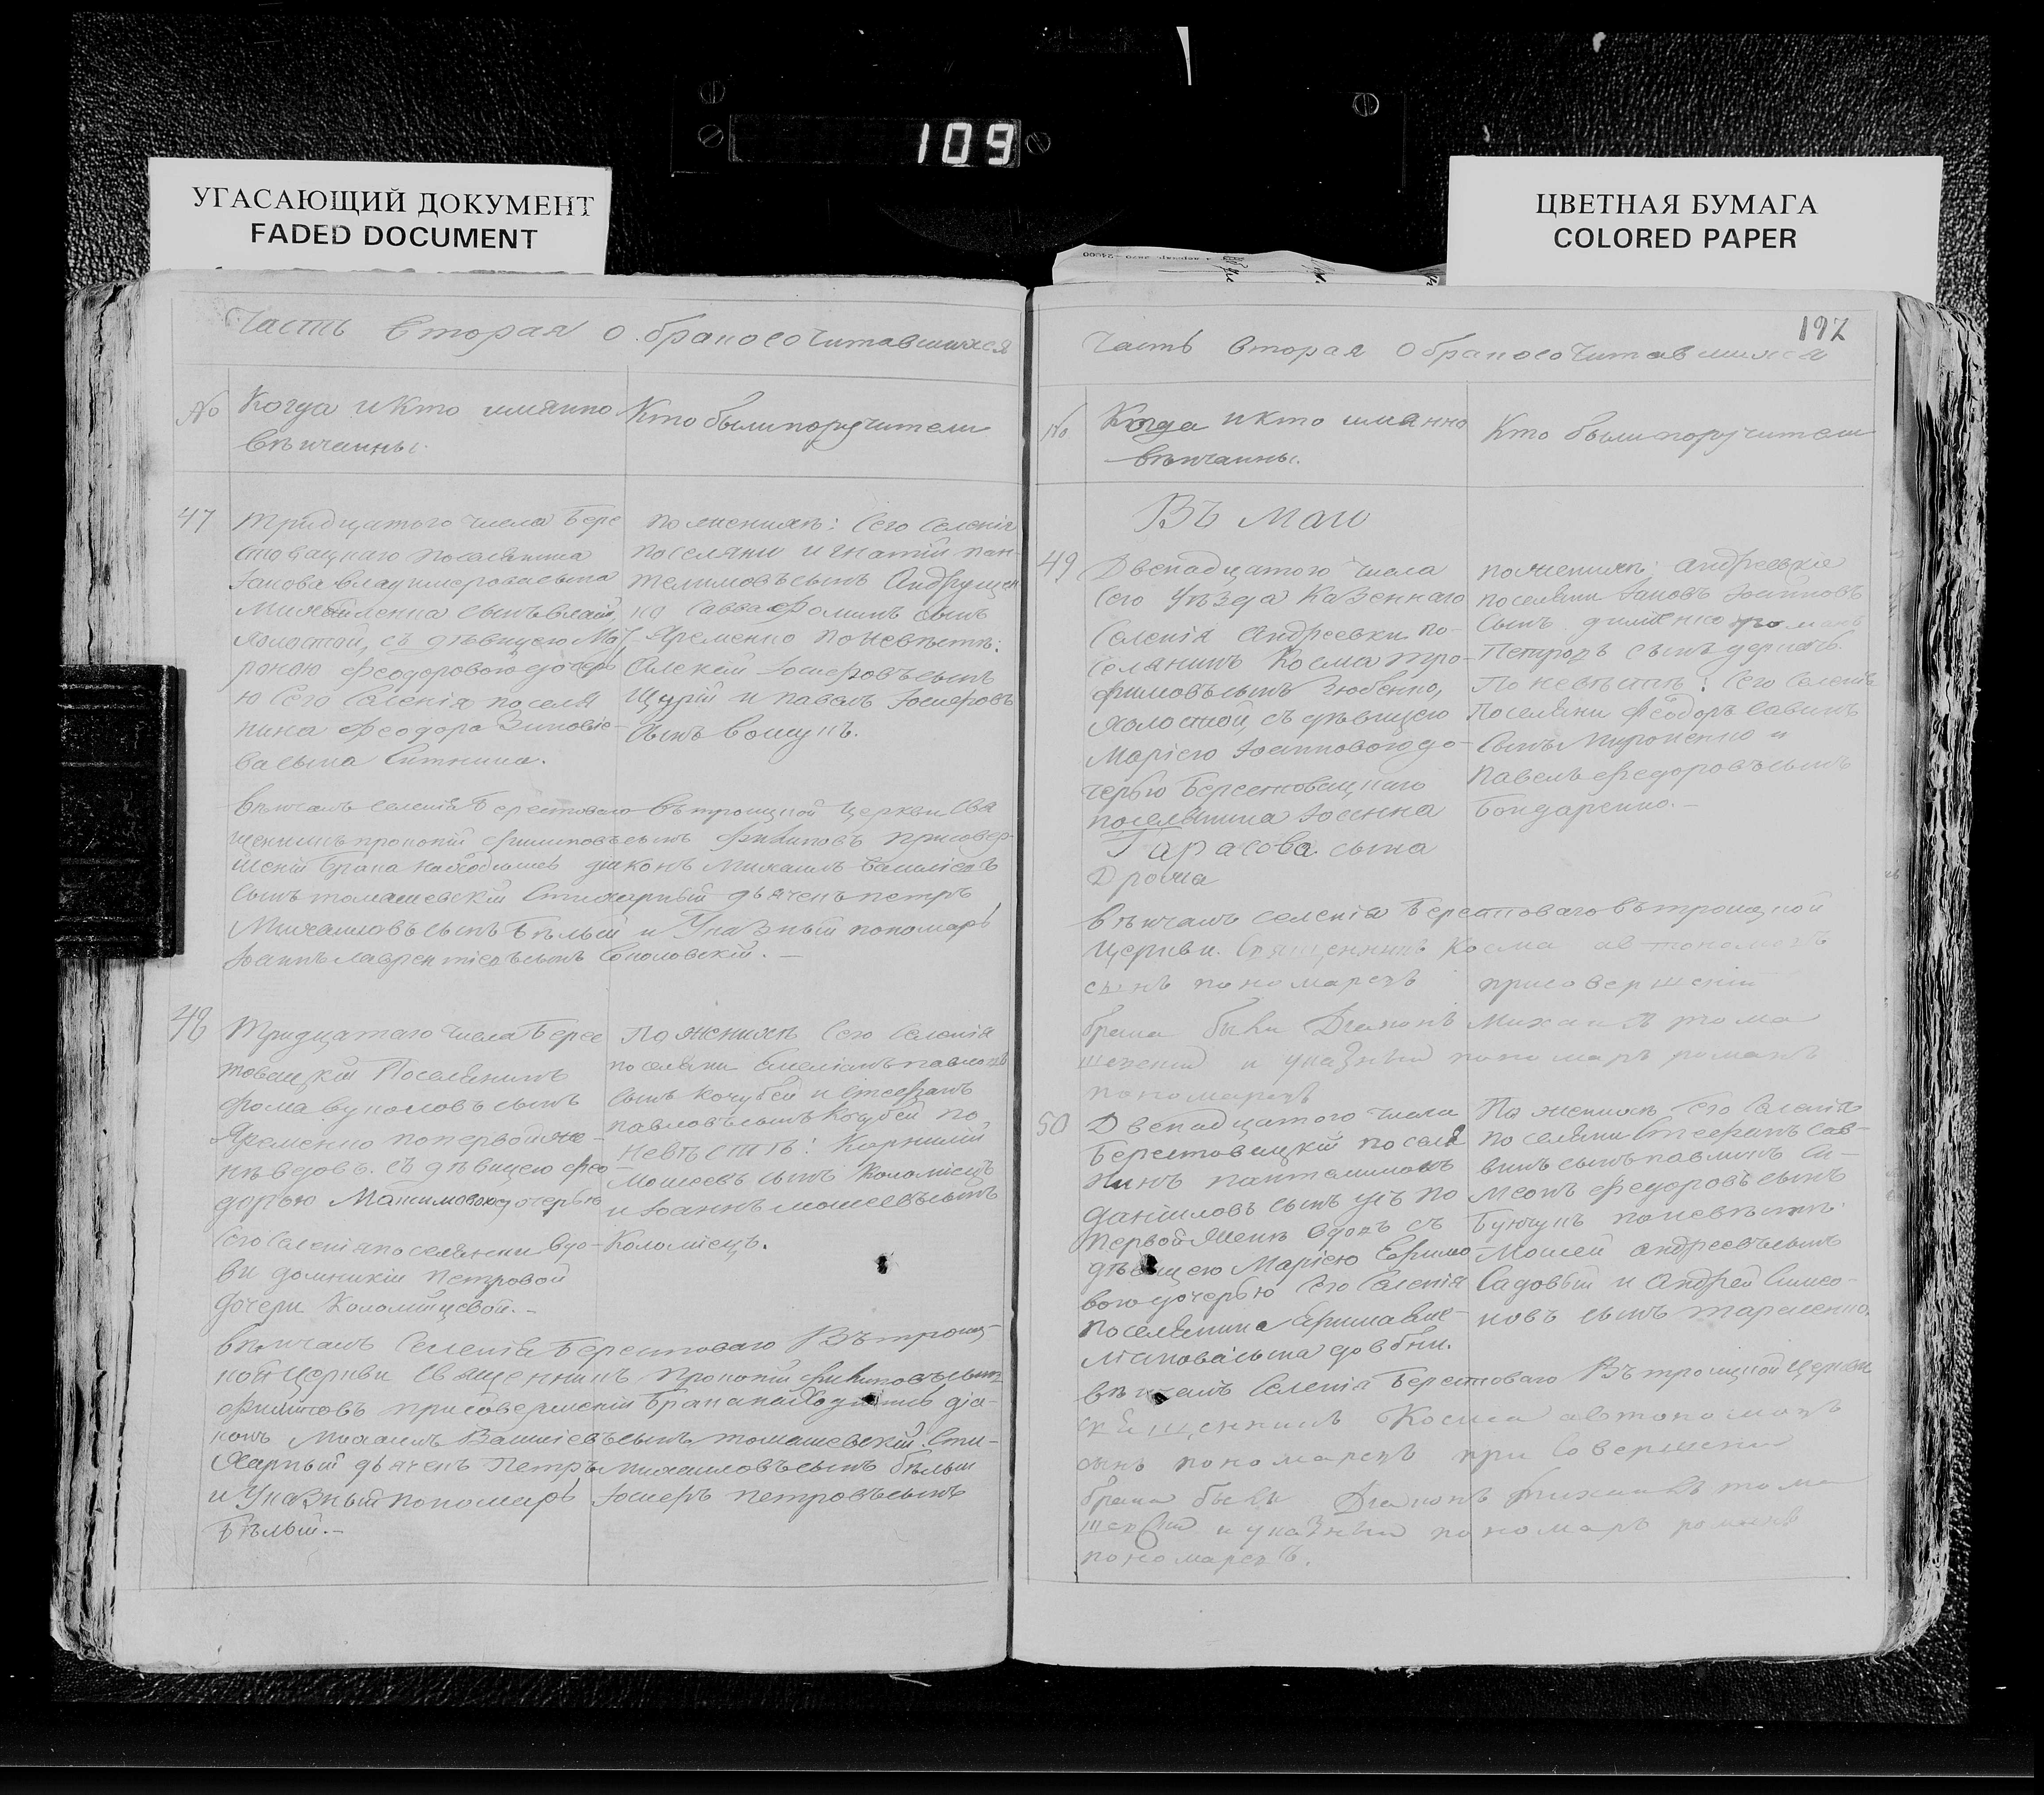 109
УГАСАЮЩИЙ ДОКУМЕНТ
FADED DOCUMENT
ЦВЕТНАЯ БУМАГА
COLORED PAPER
Часть вторая о бракосочитавшихся
№
Когда и кто имянно
венчанны.
Кто были поручители
47
тридцатого числа Бере
стовацкаго поселянина
Iакова владимерова сына
Михайленка сынъ
холостой, съ девицею Мат
роною Феодоровою дочерь
ю Сего Селенiя поселя
нина Феодора Зиновiе
ва сына Ситника.
по женихе: Сего Селенiя
поселяни игнатiй пан
телимовъ сынъ Андрущен
ко Савва Фоминъ сынъ
Яременко по невесте:
Алексiй Iосифовъ сынъ
Щурiй и павелъ Iосифовъ
сынъ вовкунъ.
венчалъ селенiя Берестоваго въ троицкой церкви Свя
щенникъ прокопiй филиповъ сынъ Филиповъ при совер
шенiй брака находились дiаконъ Михаилъ Василiевъ
сынъ томашевскiй Стихарный дьячекъ петръ
Михаиловъ сынъ Белый и Указный пономарь
Iоаннъ лаврентiевъ сынъ Соколовскiй.
48
Тридцатаго числа Берес
товацкiй Поселянинъ
фома вуколовъ сынъ
Яременко по первой же
не вдовъ. съ девицею Фео
дорою Макимовою дочерью
Сего Селенiя поселянки вдо
вы домникiи петровой
дочери Коломiйцевой.
По женихе Сего Селенiя
поселяни Емелiанъ павловъ
сынъ кочубей и Стефанъ
павловъ сынъ Кочубей по
невесте: Корнилiй
Моисеевъ сынъ Коломiецъ
и Iоаннъ моисеевъ сынъ
Коломiецъ.
венчалъ Селенiя Берестоваго Въ троиц
кой Церкви Священникъ прокопiй филиповъ сынъ
Филиповъ при совершенiй Брака находились дiа
конъ Михаилъ Василiевъ сынъ томашевскiй. Сти
Харный дьячекъ Петръ михаиловъ сынъ белый
и Указный пономарь Iосифъ петровъ сынъ
Белый.
192
Часть вторая о бракосочитавшихся
№
Когда и кто имянно
венчанны.
Кто были поручители
Въ маи
49
Двенадцатого числа
Сего Уезда Казеннаго
Селенiя Андреевки по
селянинъ Косма тро
фимовъ сынъ Зюбенко,
холостой, съ девицею
Марiею Iоанновою до
черью Берестовацкаго
поселянина Iоанна
Тарасова сына
по женихе: андреевкiе
поселяни Iаковъ Iоанновъ
сынъ романъ
Петровъ сынъ деркачъ.
По невесте: Сего Селенiя
Поселяни Феодоръ Савинъ
сынъ Мироненко и
павелъ Федоровъ сынъ
Бондаренко.
венчалъ селенiя Берестоваго въ троицкой
Церкви. Священникъ Косма автономовъ
сынъ пономаревъ при совершенiй
брака были Дiаконъ Михаилъ тома
шевский и указный пономарь романъ
пономаревъ
50
Двенадцатого числа
Берестовацкiй поселя
нинъ пантелимонъ
данiиловъ сынъ по
первой жене вдовъ съ
девицею Марiею Ефимо
вою дочерью Сего Селенiя
поселянина Ефима
сына довбни.
По женихе Сего Селенiя
поселяни Стефанъ Сав
винъ сынъ Си
меонъ Федоровъ сынъ
по невесте:
Моисей андреевъ сынъ
Садовый и Андрей Симео
новъ сынъ тарасенко.
венчалъ Селенiя Берестоваго Въ троицкой Церкви
священникъ Косма автономовъ
сынъ пономаревъ при Совершении
брака былъ Дiаконъ михаилъ тома
шевский и указный пономарь романъ
пономаревъ.